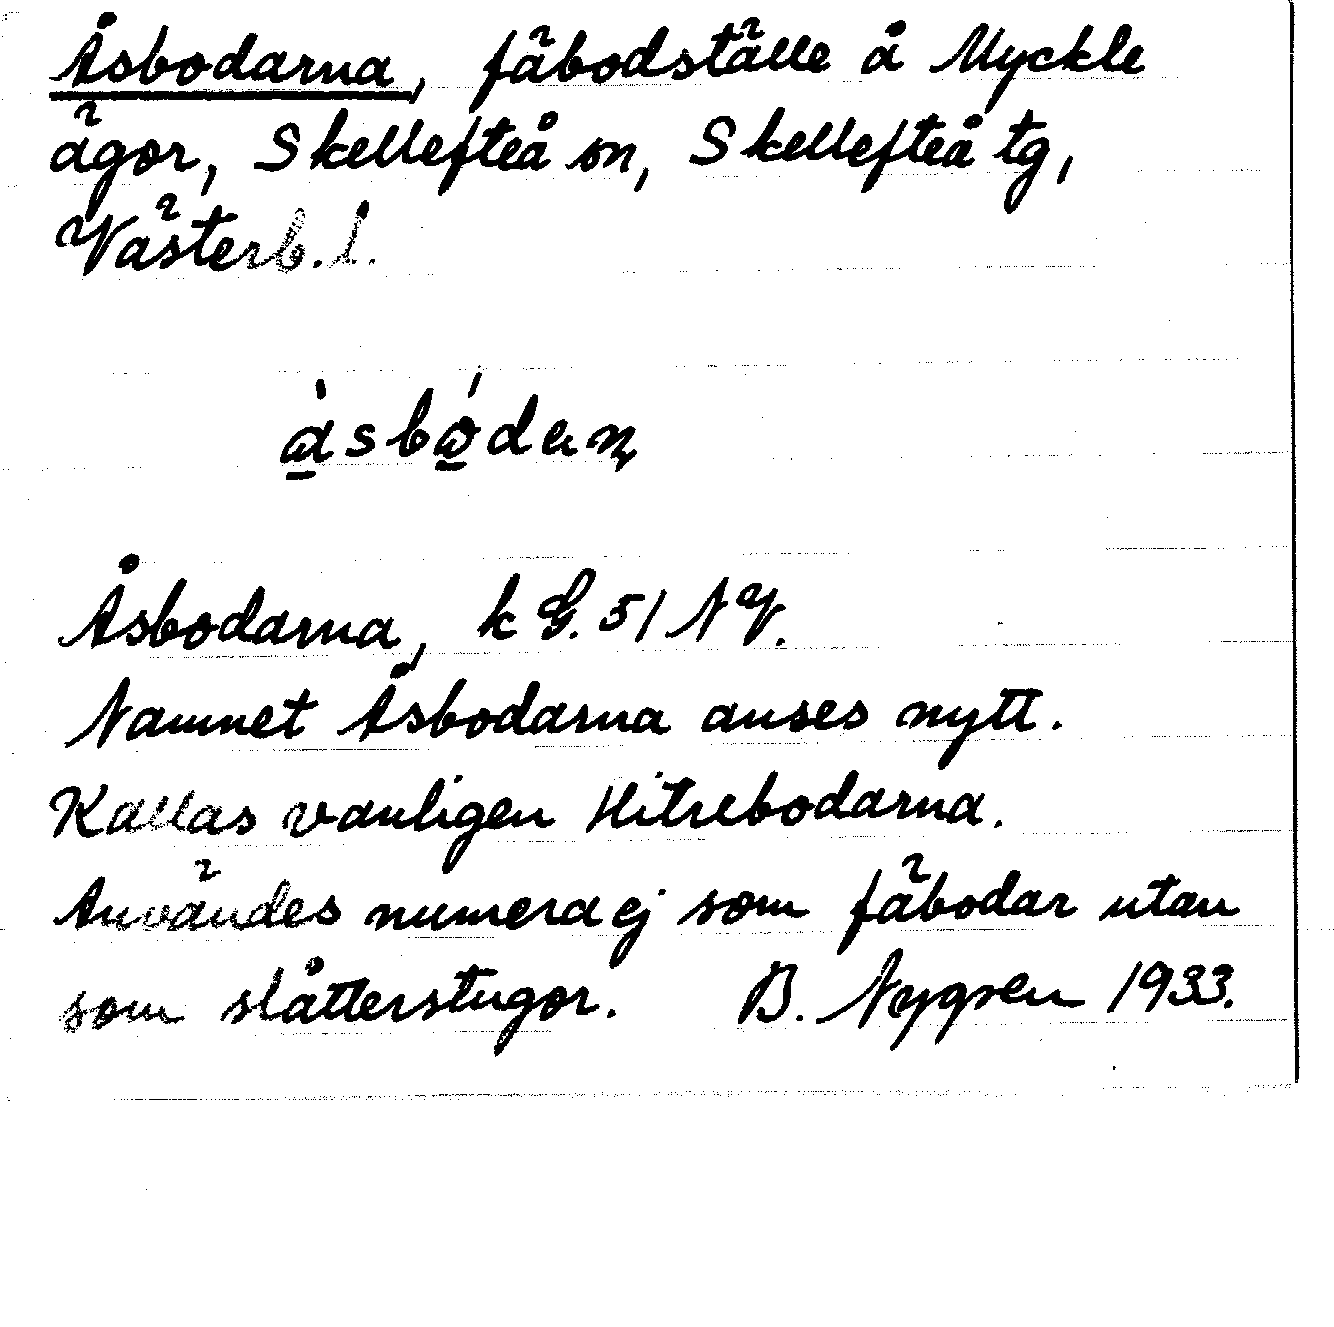 Åsbodarna, fäbodställe å Myckle
ägor, Skellefteå sn, Skellefteå tg,
Västerb. l.
Åsbodarna, k G. 51 NV.
Namnet Åsbodarna anses nytt.
Kallas vanligen Hitrebodarna.
Användes numera ej som fäbodar utan
som slåtterstugor. B. 1933.